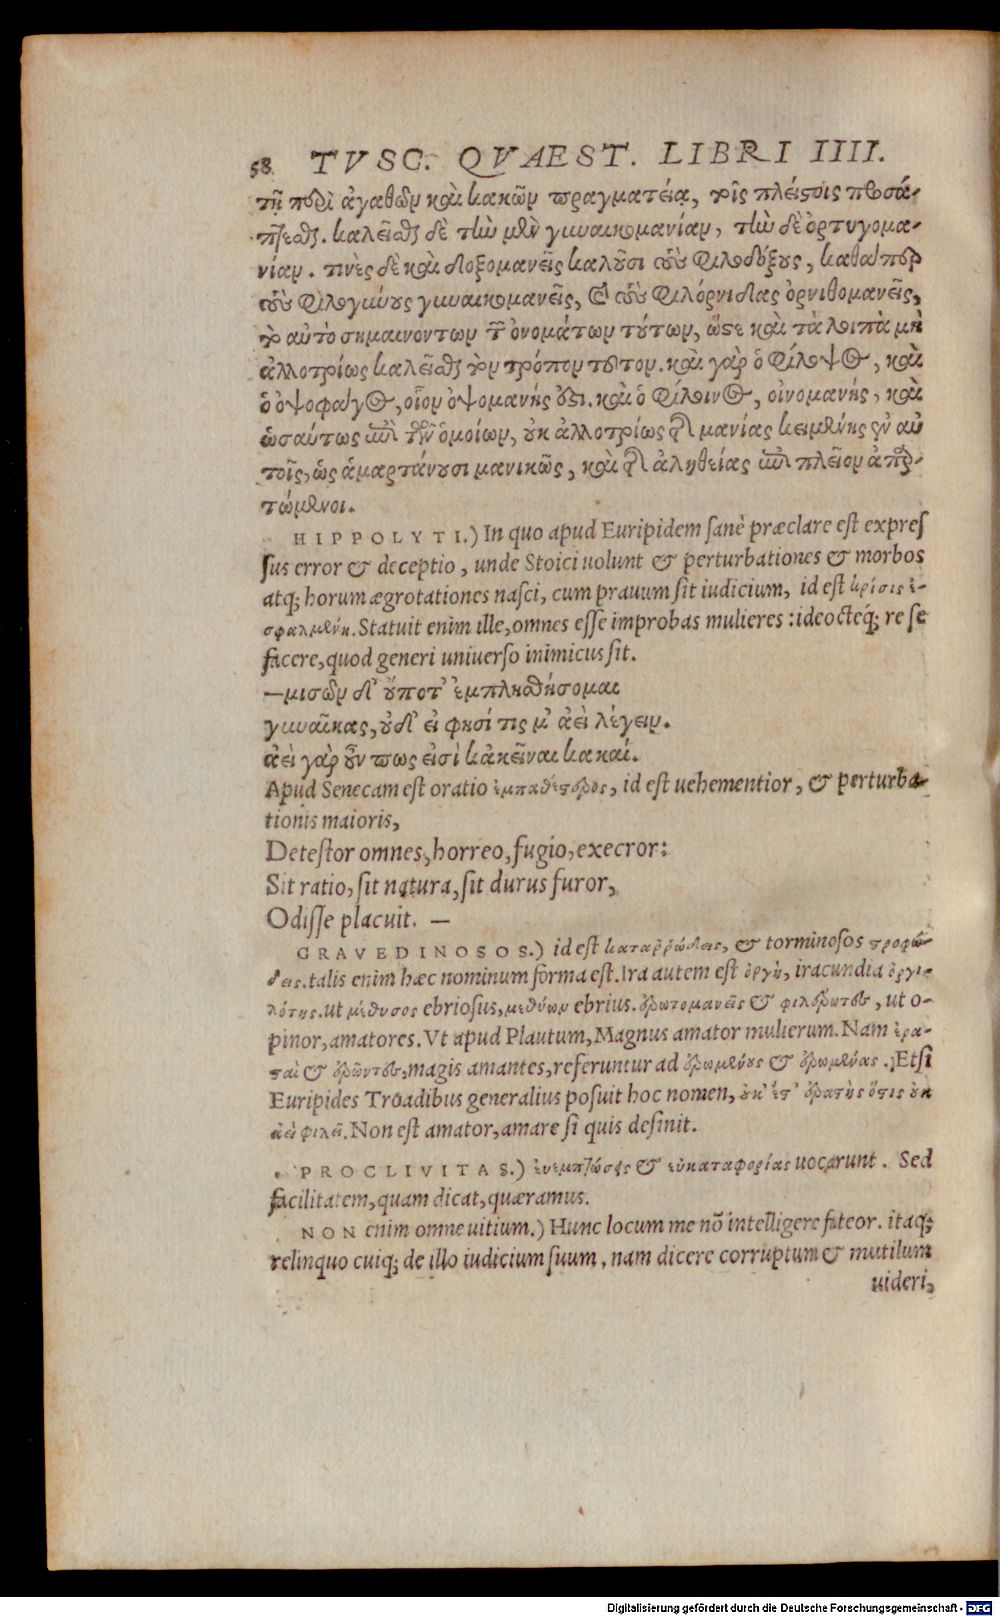 58 TVSC. QVAEST. LIBRI IIII.
τῇ περὶ ἀγαθῶν καὶ κακῶν πραγματείᾳ, τοῖς πλείστοις προσά-
πτεσθαι. καλεῖσθαι δὲ τὴν μὲν γυναικομανίαν, τὴν δὲ ὀρτυγομα-
νίαν. τινὲς δὲ καὶ δοξομανεῖς καλοῦσι τοὺς φιλοδόξους, καθάπερ
τοὺς φιλογύνους γυναικομανεῖς, καὶ τοὺς φιλόρνιθας ὀρνιθομανεῖς,
τὸ αὐτὸ σημαινοντων τῶν ὀνομάτων τούτων, ὥστε καὶ τὰ λοιπὰ μὴ
ἀλλοτρίως καλεῖσθαι τὸν τρόπον τοῦτον. καὶ γὰρ ὁ φίλοψος, καὶ
ὁ ὀψοφάγος, οἷον ὀψομανής ἐστι. καὶ ὁ φίλοινος, οἰνομανής, καὶ
ὡσαύτως ἐπὶ τῶν ὁμοίων, οὐκ ἀλλοτρίως τῆς μανίας κειμένης ἐν αὐ
τοῖς, ὡς ἁμαρτάνουσι μανικῶς, καὶ τῆς ἀληθείας ἐπὶ πλεῖον ἀπαρ-
τώμενοι.
HIPPOLYTI.) In quo apud Euripidem sanè præclare est expres
sus error & deceptio, unde Stoici uolunt & perturbationes & morbos
atq; horum ægrotationes nasci, cum prauum sit iudicium, id est κρίσις ἐ-
σφαλμένη. Statuit enim ille, omnes esse improbas mulieres: ideo cteq́; re se
facere, quod generi uniuerso inimicus sit.
—μισῶν δ' οὔποτ' ἐμπλησθήσομαι
γυναῖκας, οὐδ' εἰ φησί τις μ' ἀεὶ λέγειν.
ἀεὶ γὰρ οὖν πως εἰσὶ κἀκεῖναι κακαί.
Apud Senecam est oratio ἐμπαθέστερος, id est uehementior, & perturba-
tionis maioris,
Detestor omnes, horreo, fugio, execror:
Sit ratio, sit natura, sit durus furor,
Odisse placuit. —
GRAVEDINOSOS.) id est καταρρώδεις, & torminosos στροφώ-
δεις. talis enim hæc nominum forma est. Ira autem est ὀργὴ, iracundia ὀργι-
λότης. ut μέθυσος ebriosus, μεθύων ebrius. ἐρωτομανεῖς & φιλέρωτες, ut o-
pinor, amatores. Vt apud Plautum, Magnus amator mulierum. Nam ἐρα-
σταὶ & ἐρῶντες, magis amantes, referuntur ad ἐρωμένους & ἐρωμένας. Etsi
Euripides Troadibus generalius posuit hoc nomen, οὐκ ἔστ' ἐραστὴς ὅστις οὐκ
ἀεὶ φιλεῖ. Non est amator, amare si quis desinit.
PROCLIVITAS.) ἐυεμπτώσεις & εὐκαταφορίας uocarunt. Sed
facilitatem, quam dicat, quæramus.
NON enim omne uitium.) Hunc locum me nō intelligere fateor. itaq;
relinquo cuiq; de illo iudicium suum, nam dicere corruptum & mutilum
uideri,
Digitalisierung gefördert durch die Deutsche Forschungsgemeinschaft - DFG